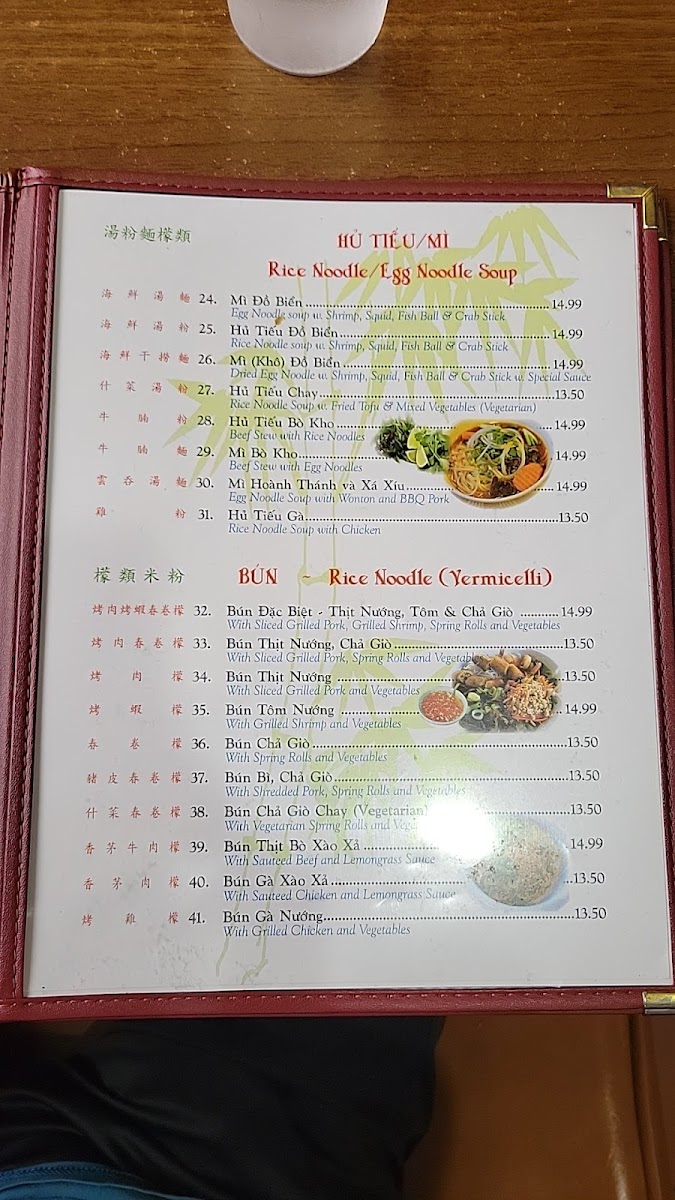 湯粉麵檬類 HỦ TIẾU/MÌ
Rice Noodle/Egg Noodle Soup
海鮮湯麵 24. Mì Đồ Biển 14.99
Egg Noodle soup w. Shrimp, Squid, Fish Ball & Crab Stick
海鮮湯粉 25. Hủ Tiếu Đồ Biển 14.99
Rice Noodle soup w. Shrimp, Squid, Fish Ball & Crab Stick
海鮮干撈麵 26. Mì (Khô) Đồ Biển 14.99
Dried Egg Noodle w. Shrimp, Squid, Fish Ball & Crab Stick w. Special Sauce
什菜湯粉 27. Hủ Tiếu Chay 13.50
Rice Noodle Soup w. Fried Tofu & Mixed Vegetables (Vegetarian)
牛腩粉 28. Hủ Tiếu Bò Kho 14.99
Beef Stew with Rice Noodles
牛腩麵 29. Mì Bò Kho 14.99
Beef Stew with Egg Noodles
雲吞湯麵 30. Mì Hoành Thánh và Xá Xíu 14.99
Egg Noodle Soup with Wonton and BBQ Pork
雞粉 31. Hủ Tiếu Gà 13.50
Rice Noodle Soup with Chicken
檬類米粉 BÚN ~ Rice Noodle (Vermicelli)
烤肉烤蝦春卷檬 32. Bún Đặc Biệt - Thịt Nướng, Tôm & Chả Giò 14.99
With Sliced Grilled Pork, Grilled Shrimp, Spring Rolls and Vegetables
烤肉春卷檬 33. Bún Thịt Nướng, Chả Giò 13.50
With Sliced Grilled Pork, Spring Rolls and Vegetab
烤肉檬 34. Bún Thịt Nướng 13.50
With Sliced Grilled Pork and Vegetables
烤蝦檬 35. Bún Tôm Nướng 14.99
With Grilled Shrimp and Vegetables
春卷檬 36. Bún Chả Giò 13.50
With Spring Rolls and Vegetables
豬皮春卷檬 37. Bún Bì, Chả Giò 13.50
With Shredded Pork, Spring Rolls and Vegetables
什菜春卷檬 38. Bún Chả Giò Chay (Vegetarian) 13.50
With Vegetarian Spring Rolls and
香茅牛肉檬 39. Bún Thịt Bò Xào Xả 14.99
With Sauteed Beef and Lemongrass Sauce
香茅肉檬 40. Bún Gà Xào Xả 13.50
With Sauteed Chicken and Lemongrass Sauce
烤雞檬 41. Bún Gà Nướng 13.50
With Grilled Chicken and Vegetables